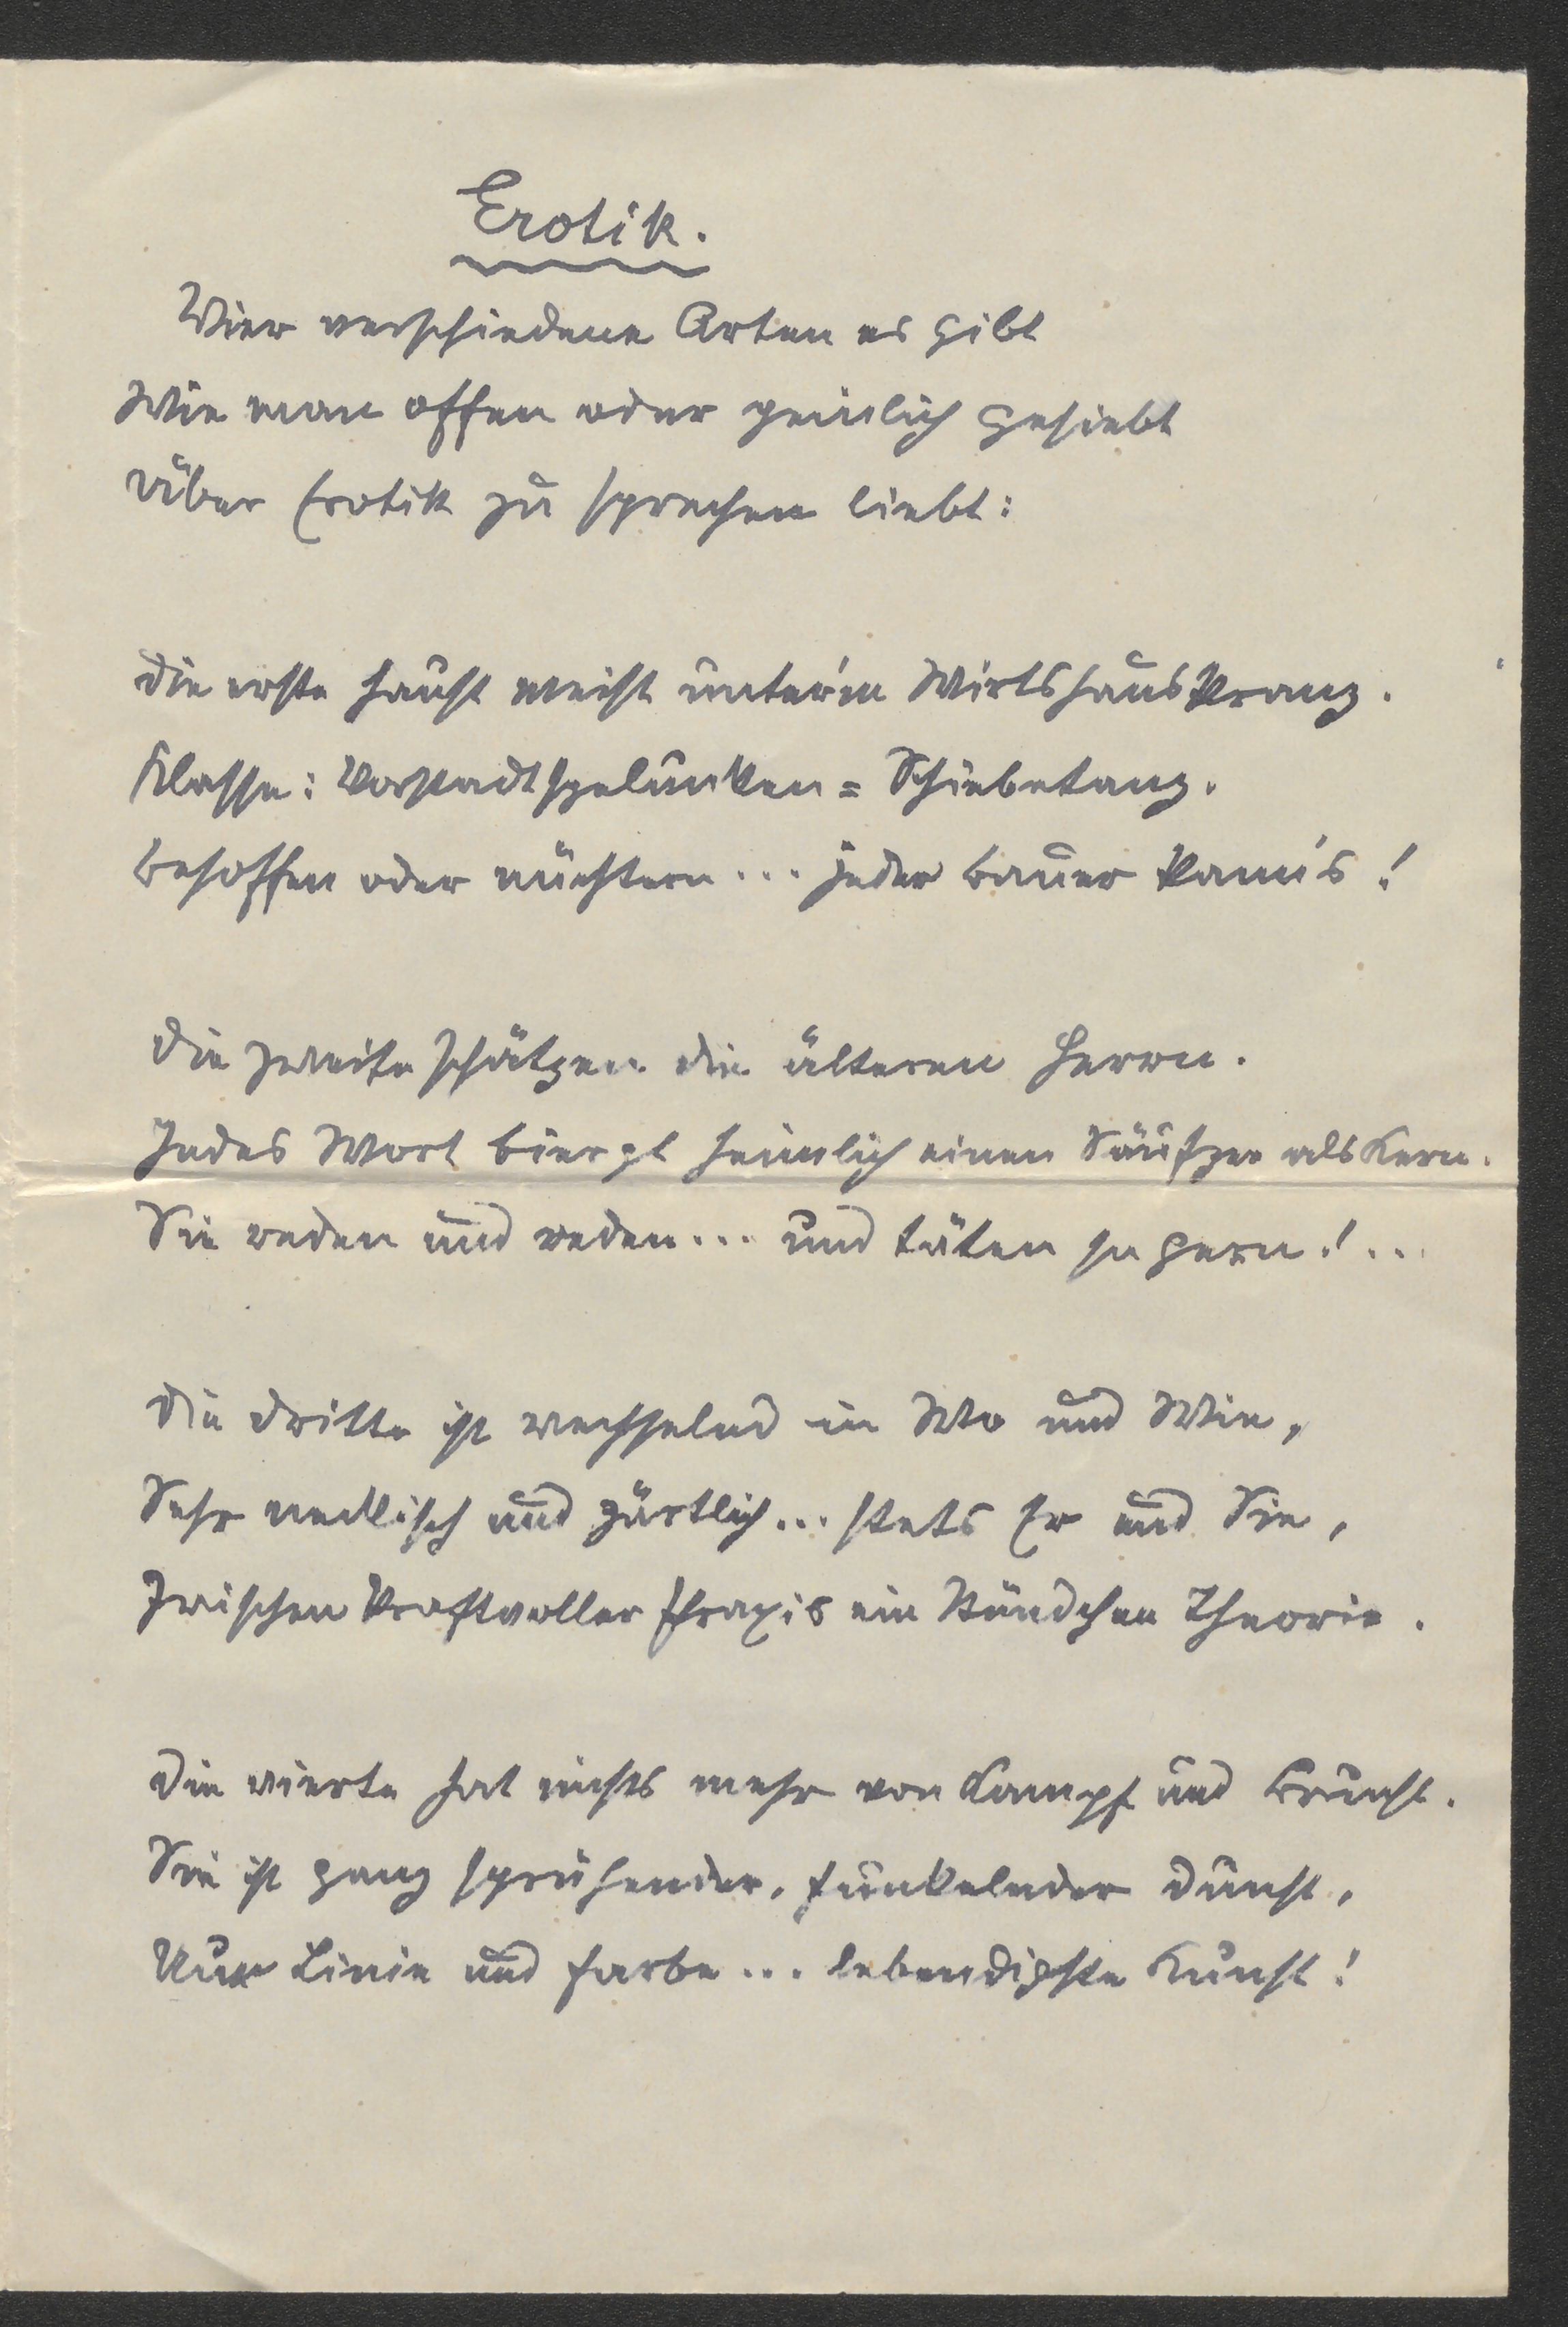 Erotik.
Vier verschiedene Arten es gibt
Wie man offen oder peinlich gesiebt
Über Erotik zu sprechen liebt:
Die erste haust meist unter'm Wirtshauskranz.
Klasse: Vorstadtspelunken = Schiebetanz.
Besoffen oder nüchtern ... jeder Bauer kann's!
Die zweite schätzen die älteren Herrn.
Jedes Wort biergt heimlich einen Säufzer als Kern.
Sie reden und reden ... und täten so gern! ..
Die dritte ist wechselnd in Wo und Wie,
Sehr neckisch und zärtlich ... stets Er und Sie,
Zwischen kraftvoller Praxis ein Stündchen Theorie.
Die vierte hat nichts mehr von Kampf und Brunst.
Sie ist ganz sprühender, funkelnder Dunst,
Nur Linie und Farbe ... lebendigste Kunst!